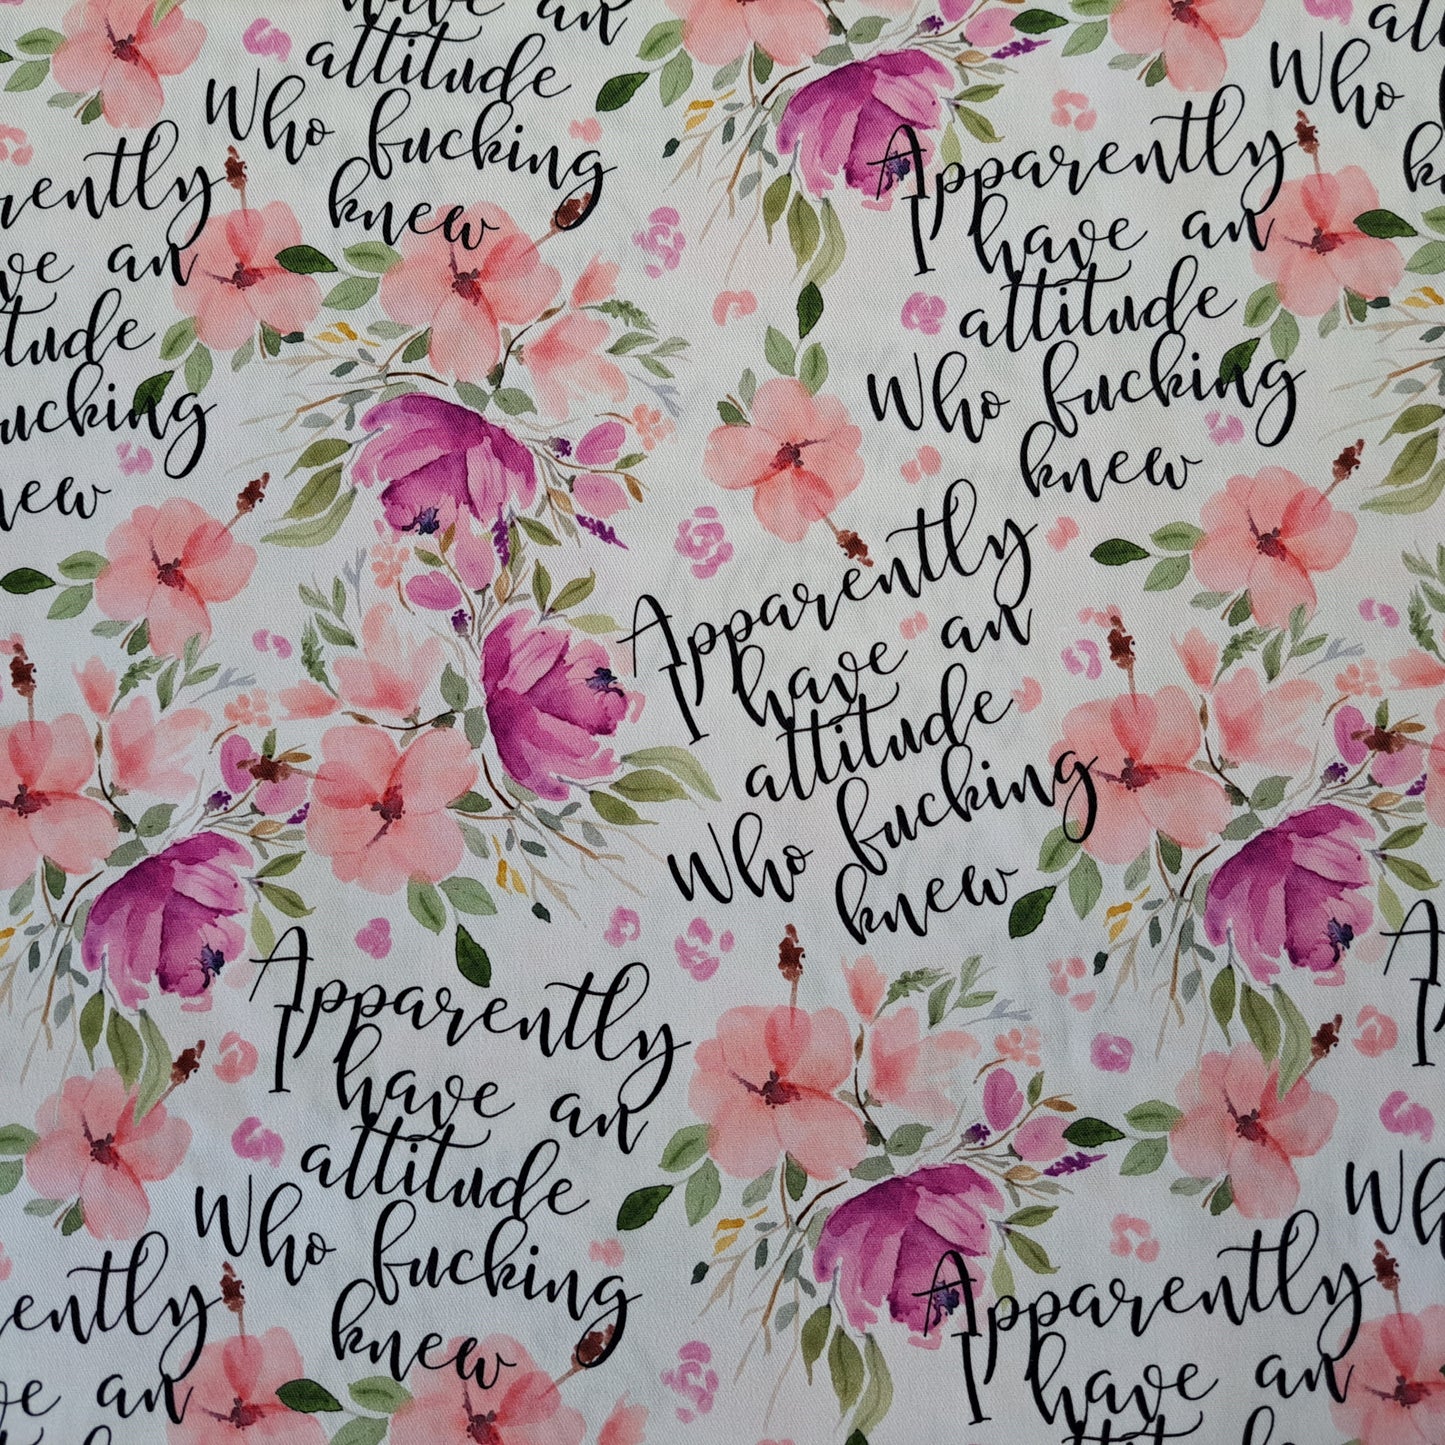 have an
attitude
Who fucking
knew
rently
ve an
tude
ucking
new
Apparently
I have an
attitude
Who fucking
knew
att
Who
k
Apparently
I have an
attitude
Who fucking
knew
Apparently
I have an
attitude
Who fucking
knew
A
I
Wh
rently
e an
Apparently
I have an